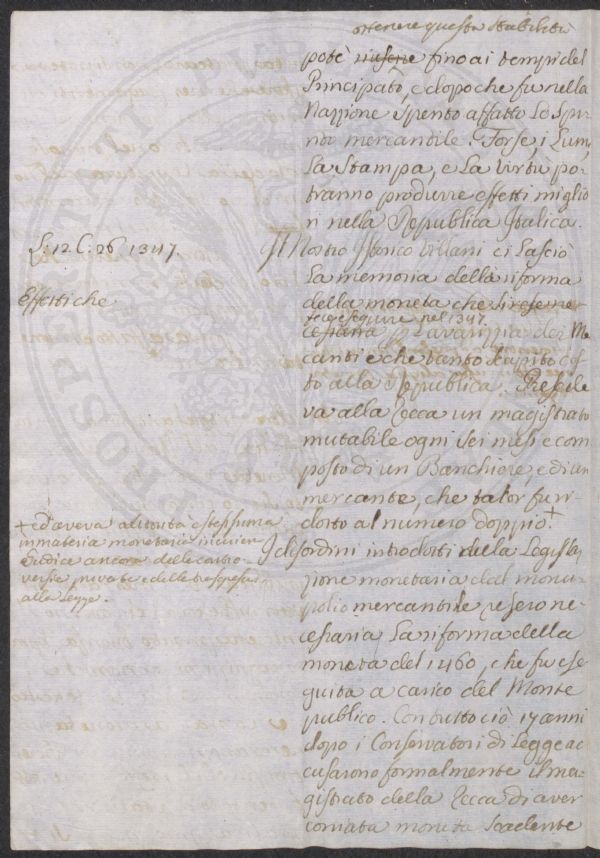 ottenere questa stabilità
potè riusene fino ai tempi del
Principato, e dopo che fu nella
Nazione spento affatto lo Spi
rito mercantile. Forse, i Lumi,
la Stampa, e la virtù po-
tranno produrre effetti miglio
ri nella Repubblica Italica.
L: 12 C: 96 1347.
Il Nostro Istorico Villani ci lasciò
la memoria della riforma
Effettiche
della moneta che si rese ne
fece eseguire nel 1347.
cessaria l'avarizia dei Me
canti e che tanto discapito co
stò alla Repubblica. Presede
va alla Zecca un magistrato
mutabile ogni sei mesi e com
posto di un Banchiere, e di un
mercante, che talor fu ri-
dotto al numero doppio. +
+ ed aveva autorità estesissima
in materia monetaria
Giudice ancora delle contro-
versie private e delle trasgressi
alla Legge.
I disordini introdotti della Legisla
zione monetaria dal mono-
polio mercantile resero ne-
cessaria la riforma della
moneta del 1460, che fu ese
guita a carico del Monte
pubblico. Con tutto ciò 17 anni
dopo i Conservatori di Legge ac
cusarono formalmente il ma-
gistrato della Zecca di aver
coniata moneta scadente